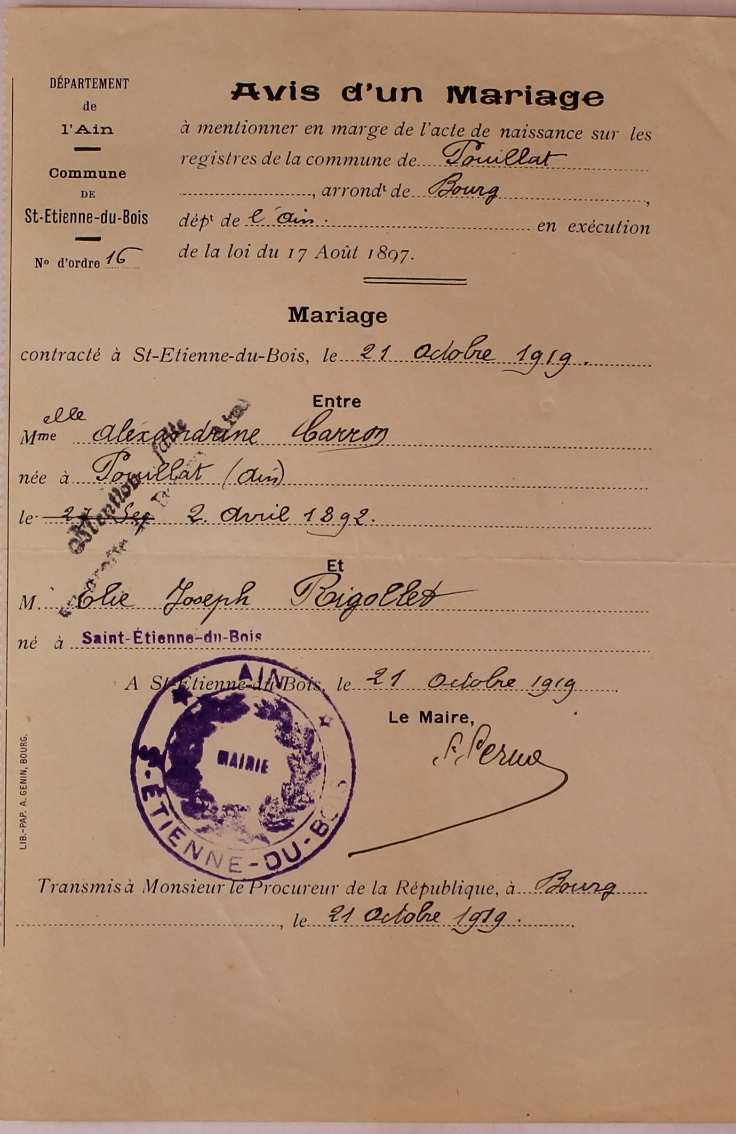 DÉPARTEMENT
de
l'Ain
Commune
DE
St-Etienne-du-Bois
No d'ordre 16
Avis d'un Mariage
à mentionner en marge de l'acte de naissance sur les
registres de la commune de Pouillat
, arrondt de Bourg,
dépt de l'ain. en exécution
de la loi du 17 Août 1897.
Mariage
contracté à St-Etienne-du-Bois, le 21 octobre 1919.
Entre
elle
Mme alexandrine Carron
née à Pouillat (ain)
le 2. avril 1892.
Mention faite
Et
M. Elie Joseph Rigollet
né à Saint-Étienne-du-Bois
A St-Etienne-du-Bois, le 21 octobre 1919.
Le Maire,
AIN
MAIRIE
St-ÉTIENNE-DU-BOIS
LIB.-PAP. A. GENIN, BOURG.
Transmis à Monsieur le Procureur de la République, à Bourg
, le 21 octobre 1919.